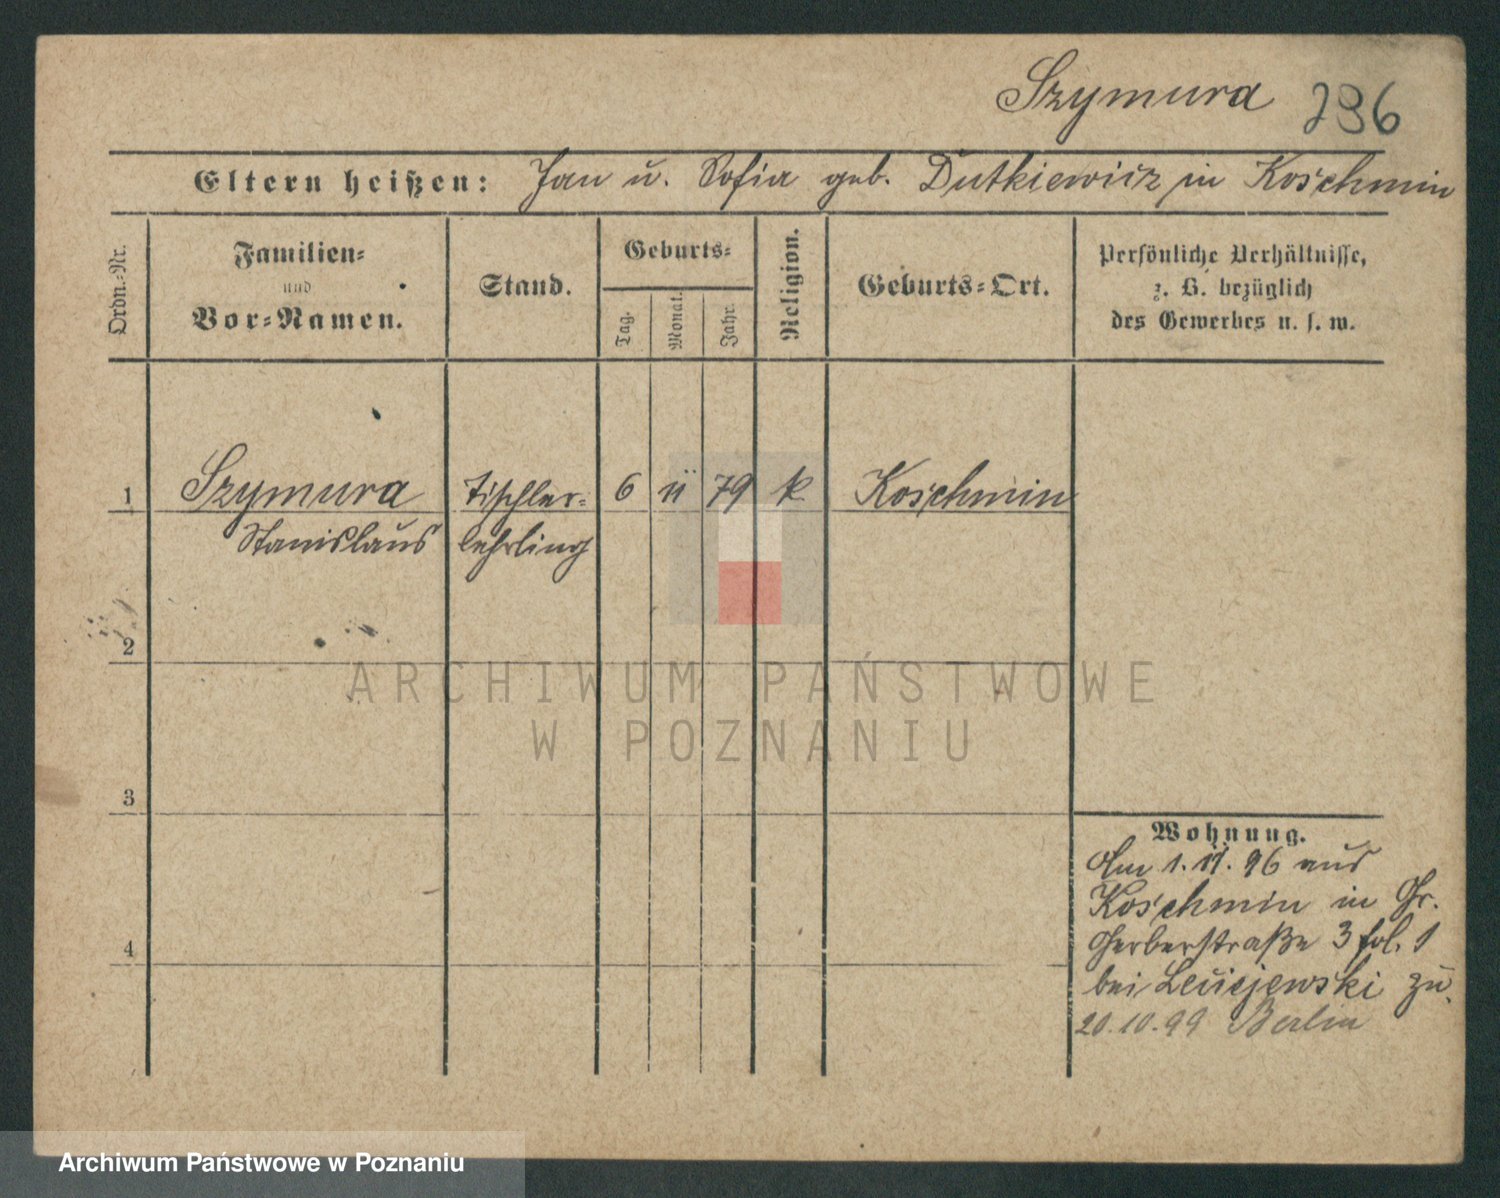 Szymura 296
Eltern heißen: Jan u. Sofia geb. Dutkiewicz in Koschmin
Ordn.-Nr.
Familien-
und
Vor-Namen.
Stand.
Geburts-
Tag.
Monat.
Jahr.
Religion.
Geburts-Ort.
Persönliche Verhältnisse,
z. B. bezüglich
des Gewerbes u. s. w.
1 Szymura Tischler- 6 11 79 k Koschmin
Stanislaus lehrling
2
3
4
Wohnung.
Am 1. 11. 96 aus
Koschmin in Gr.
Gerberstraße 3 fol. 1
bei zu.
20.10.99 Berlin
ARCHIWUM PAŃSTWOWE
W POZNANIU
Archiwum Państwowe w Poznaniu